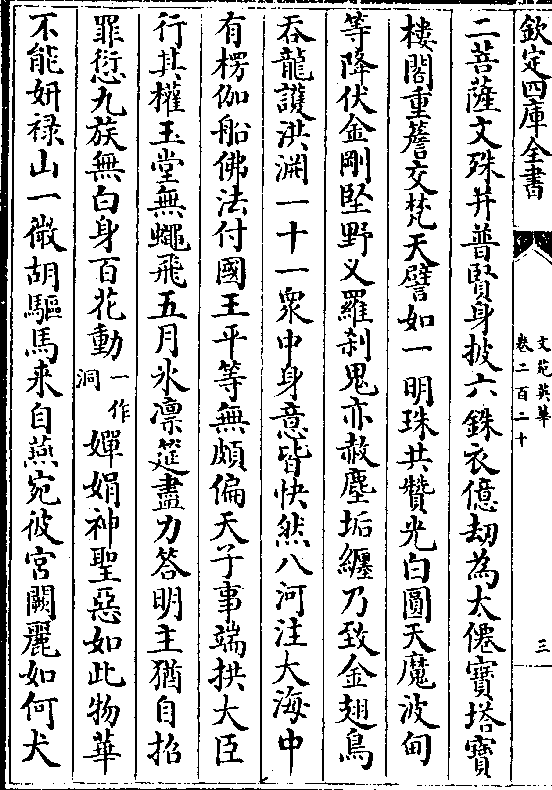 欽定四庫全書
文苑英華
卷二百二十
三
二菩薩文殊并普賢身披六銖衣億劫為大僊寶塔寶
樓閣重簷交梵天譬如一明珠共贊光白圓天魔波旬
等降伏金剛堅野义羅刹鬼亦赦塵垢纏乃致金翅鳥
吞龍護洪淵一十一衆中身意皆快然八河注大海中
有楞伽船佛法付國王平等無頗偏天子事端拱大臣
行其權玉堂無蠅飛五月氷凛筵盡力答明主猶自招
罪愆九族無白身百花動一作洞嬋娟神聖惡如此物華
不能妍禄山一微胡驅馬来自燕宛彼宮闕麗如何犬